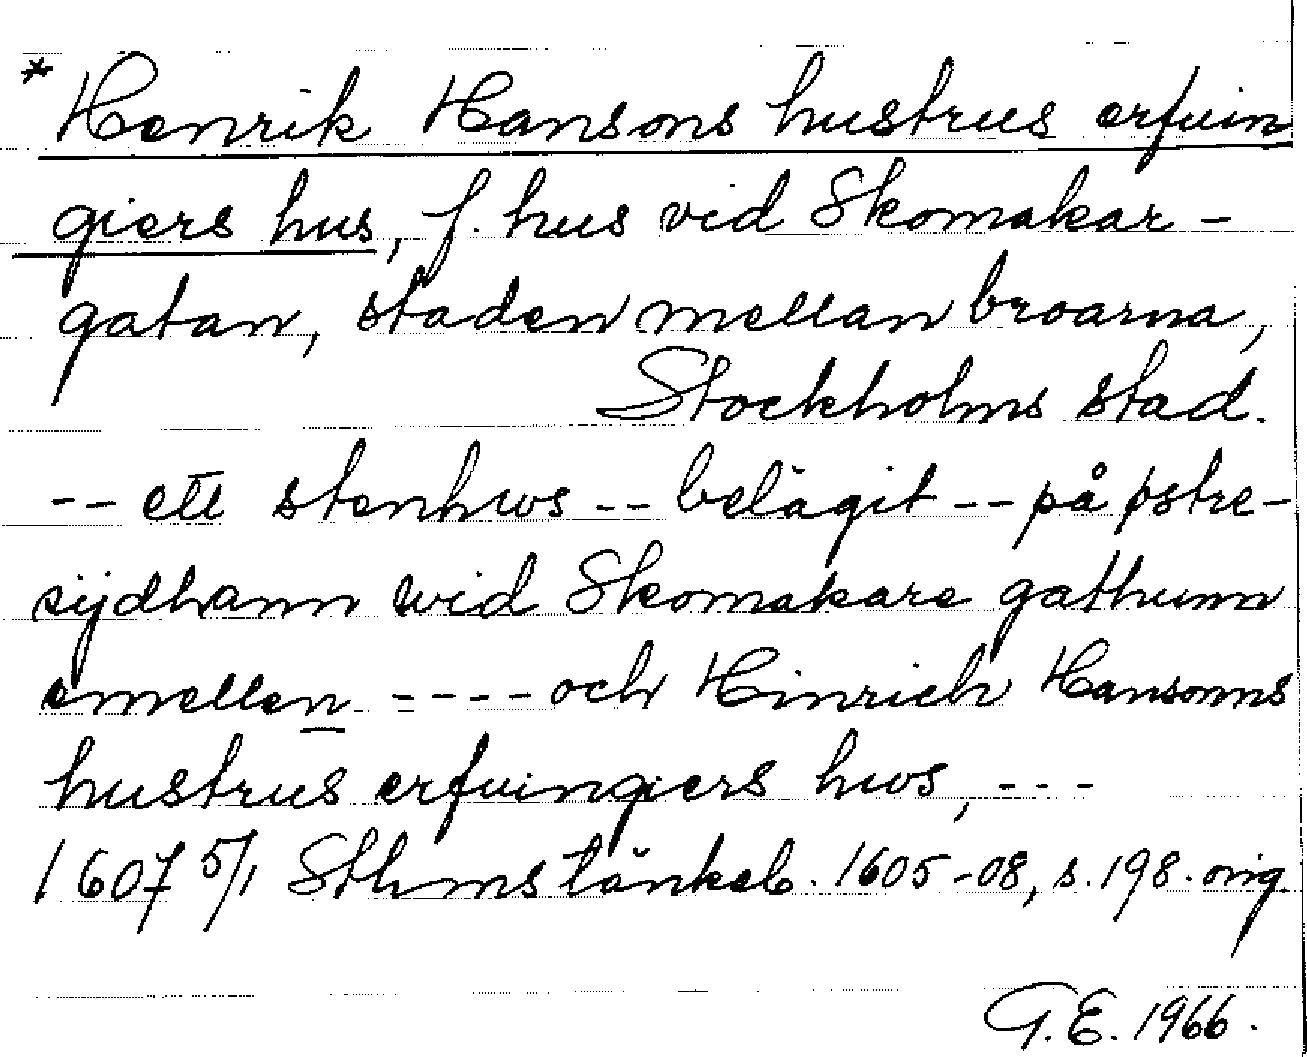 * Henrik Hansons hustrus erfuin
giers hus, f. hus vid Skomakar-
gatan, staden mellan broarna,
Stockholms stad.
-- ett stenhws -- belägit -- på østre-
sijdhann wid Skomakare gathunn
emellen ---- och Hinrich Hansonns
hustrus erfuingiers hws, ---
1607 5/1 Sthms tänkeb. 1605-08, s. 198. orig.
G.E. 1966.